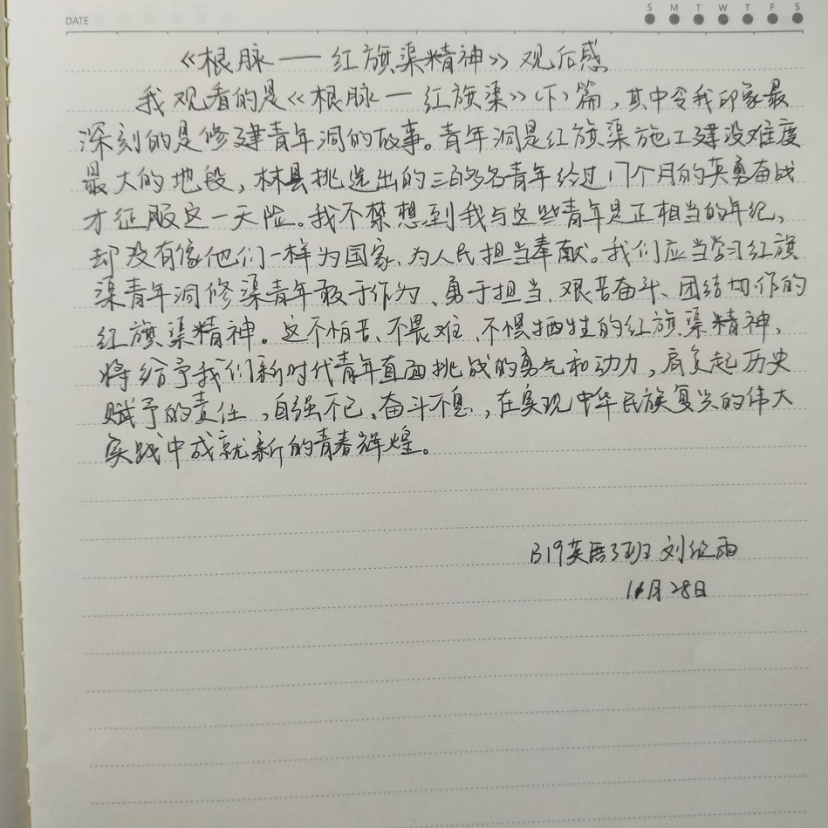 DATE
S M T W T F S
《根脉——红旗渠精神》观后感
我观看的是《根脉—红旗渠》（下）篇，其中令我印象最
深刻的是修建青年洞的故事。青年洞是红旗渠施工建设难度
最大的地段，林县挑选出的三百多名青年经过17个月的英勇奋战
才征服这一天险。我不禁想到我与这些青年是正相当的年纪，
却没有像他们一样为国家、为人民担当奉献。我们应当学习红旗
渠青年洞修渠青年敢于作为、勇于担当、艰苦奋斗、团结协作的
红旗渠精神。这不怕苦、不畏难、不惧牺牲的红旗渠精神，
将给予我们新时代青年直面挑战的勇气和动力，肩负起历史
赋予的责任，自强不已、奋斗不息，在实现中华民族复兴的伟大
实践中成就新的青春辉煌。
B19英语3班 刘雨
月28日